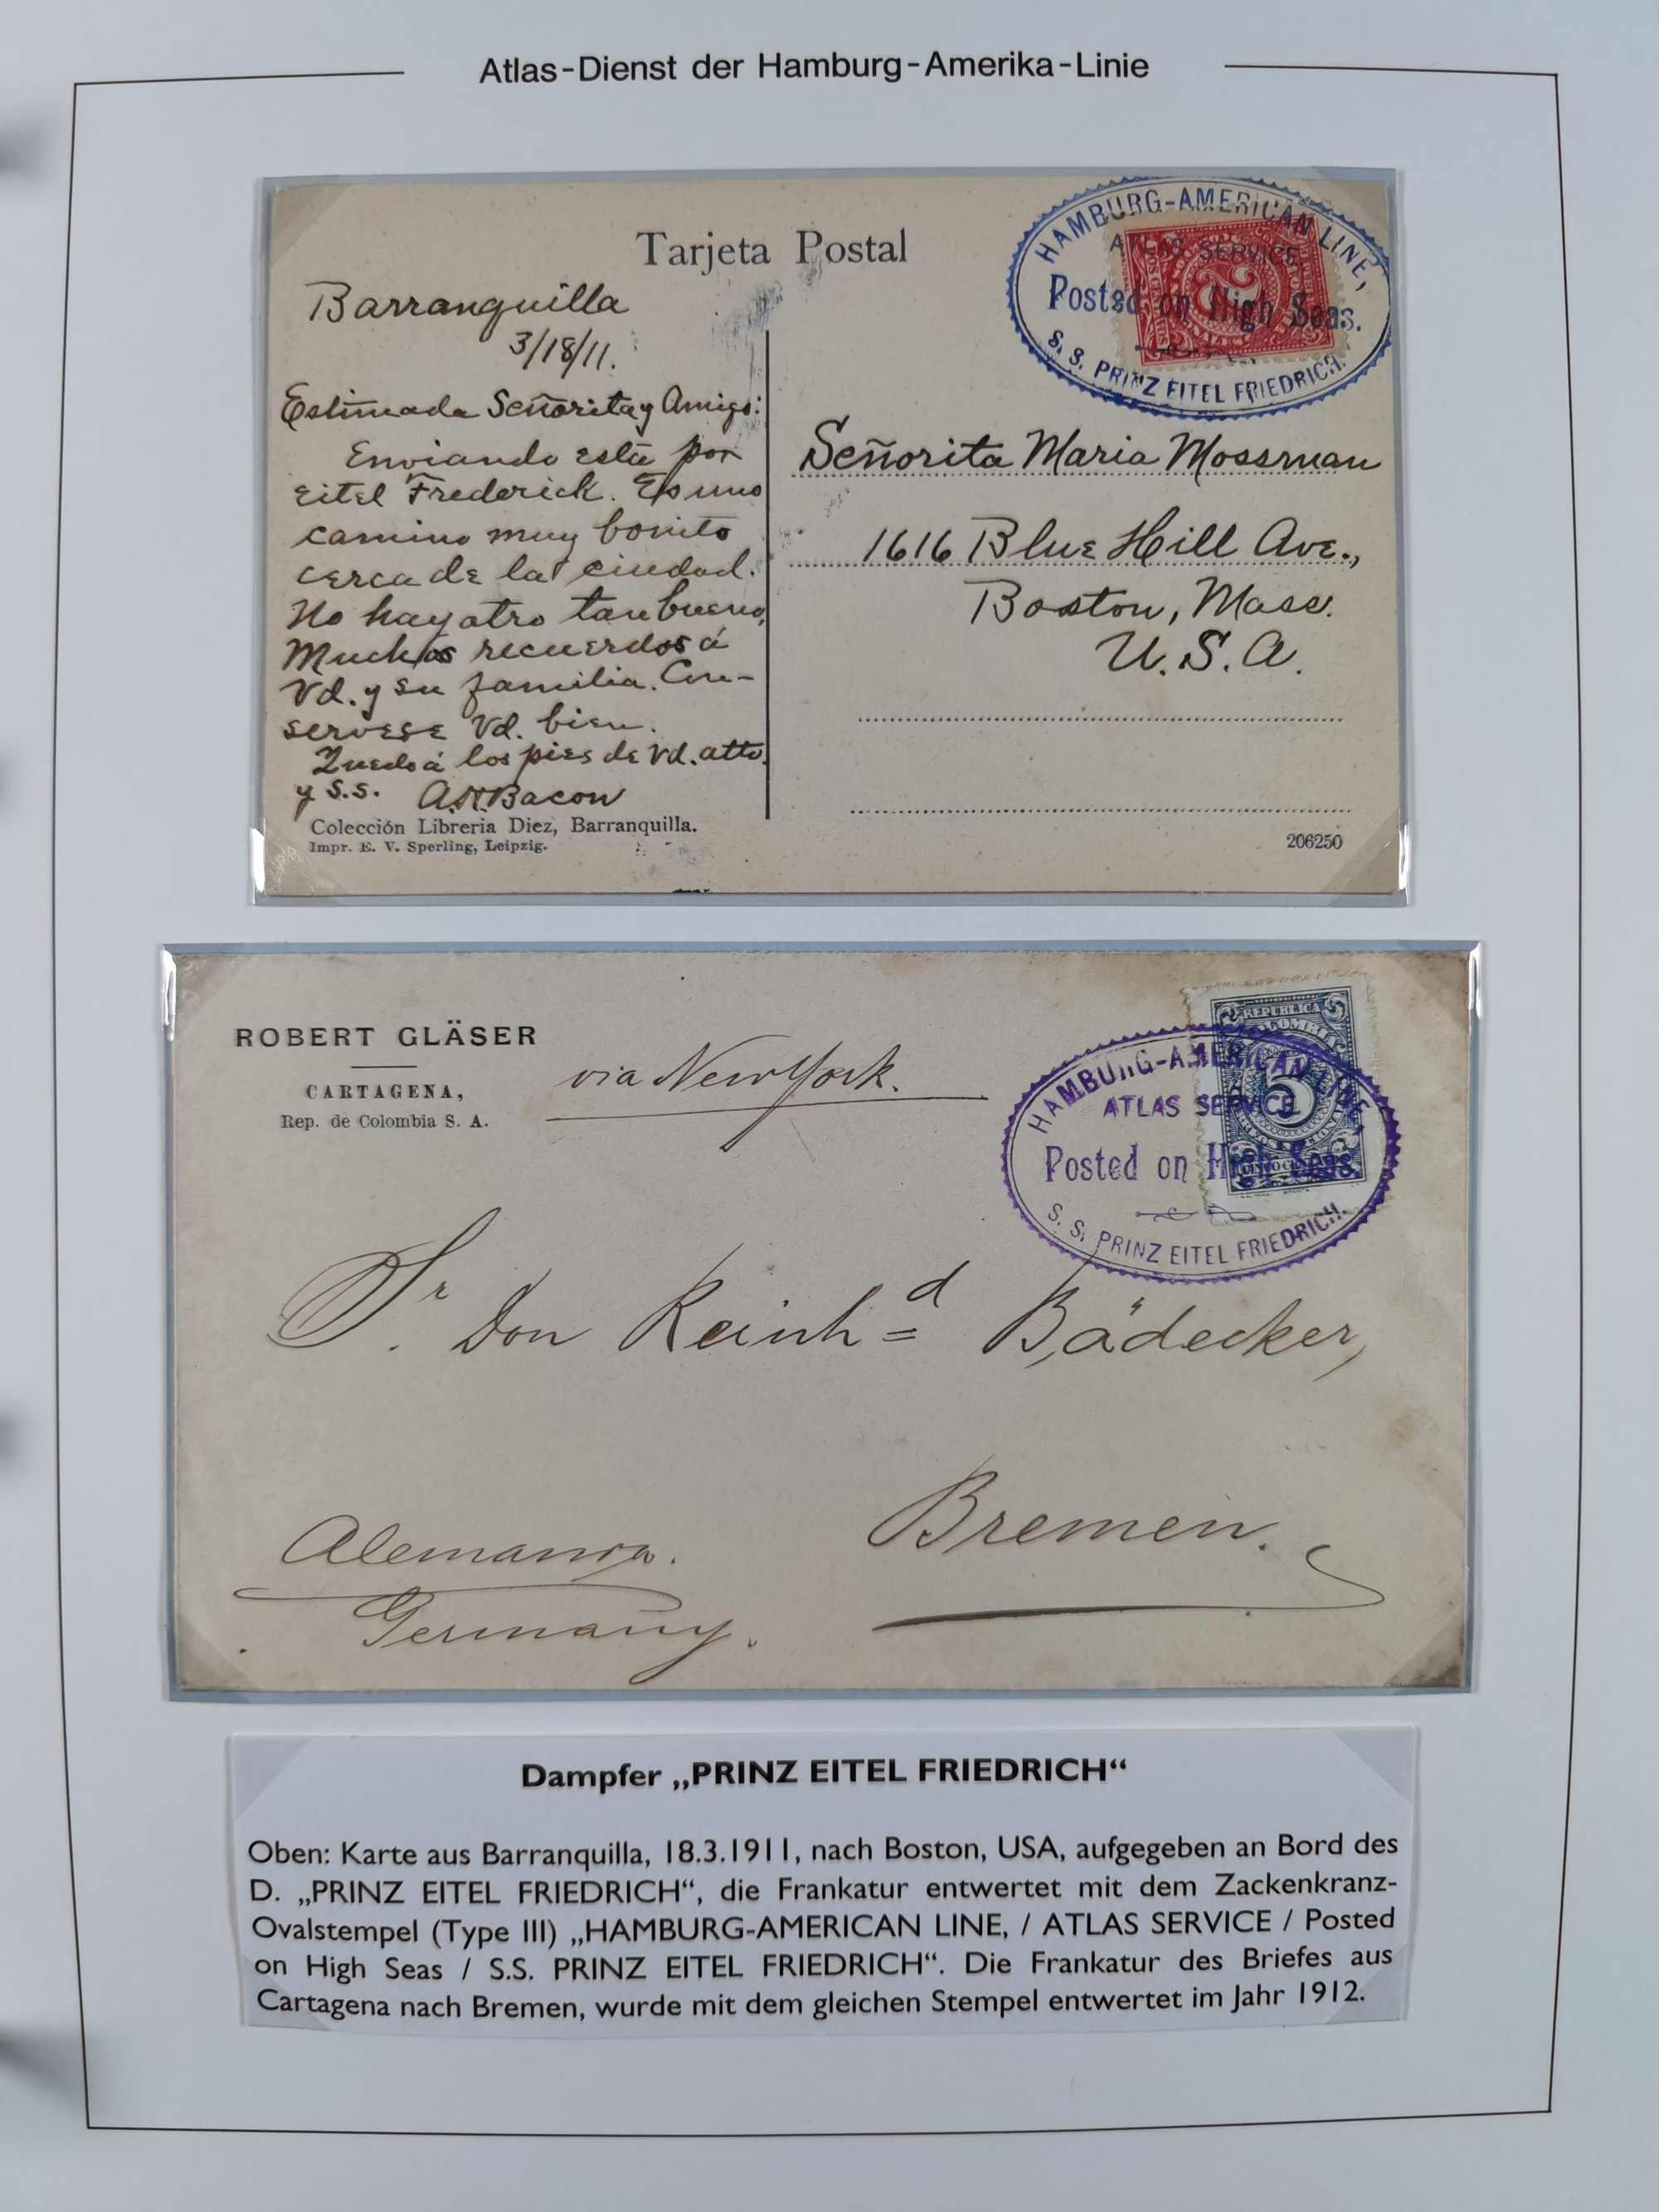 Atlas-Dienst der Hamburg-Amerika-Linie
Tarjeta Postal
HAMBURG-AMERICAN LINE,
ATLAS SERVICE.
Posted on High Seas.
S. S. PRINZ EITEL FRIEDRICH.
2
Barranquilla
3/18/11.
Estimada Señorita y Amiga:
Enviando esta por
Eitel Frederick. Es uno
camino muy bonito
cerca de la ciudad.
No hay otro tan bueno,
Muchos recuerdos á
Vd. y su familia. Con-
servese Vd. bien.
Quedo á los pies de Vd. atto.
y S.S. A.H. Bacon
Señorita Maria Mossman
1616 Blue Hill Ave.,
Boston, Mass.
U.S.A.
Colección Libreria Diez, Barranquilla.
Impr. E. V. Sperling, Leipzig.
206250
ROBERT GLÄSER
CARTAGENA,
Rep. de Colombia S. A.
via New York.
REPUBLICA
COLOMBIA
5
HAMBURG-AMERICAN LINE,
ATLAS SERVICE.
Posted on High Seas.
S. S. PRINZ EITEL FRIEDRICH.
Sr. Don Reinhd Bädecker,
Bremen.
Alemania.
Germany.
Dampfer „PRINZ EITEL FRIEDRICH“
Oben: Karte aus Barranquilla, 18.3.1911, nach Boston, USA, aufgegeben an Bord des
D. „PRINZ EITEL FRIEDRICH“, die Frankatur entwertet mit dem Zackenkranz-
Ovalstempel (Type III) „HAMBURG-AMERICAN LINE, / ATLAS SERVICE / Posted
on High Seas / S.S. PRINZ EITEL FRIEDRICH“. Die Frankatur des Briefes aus
Cartagena nach Bremen, wurde mit dem gleichen Stempel entwertet im Jahr 1912.